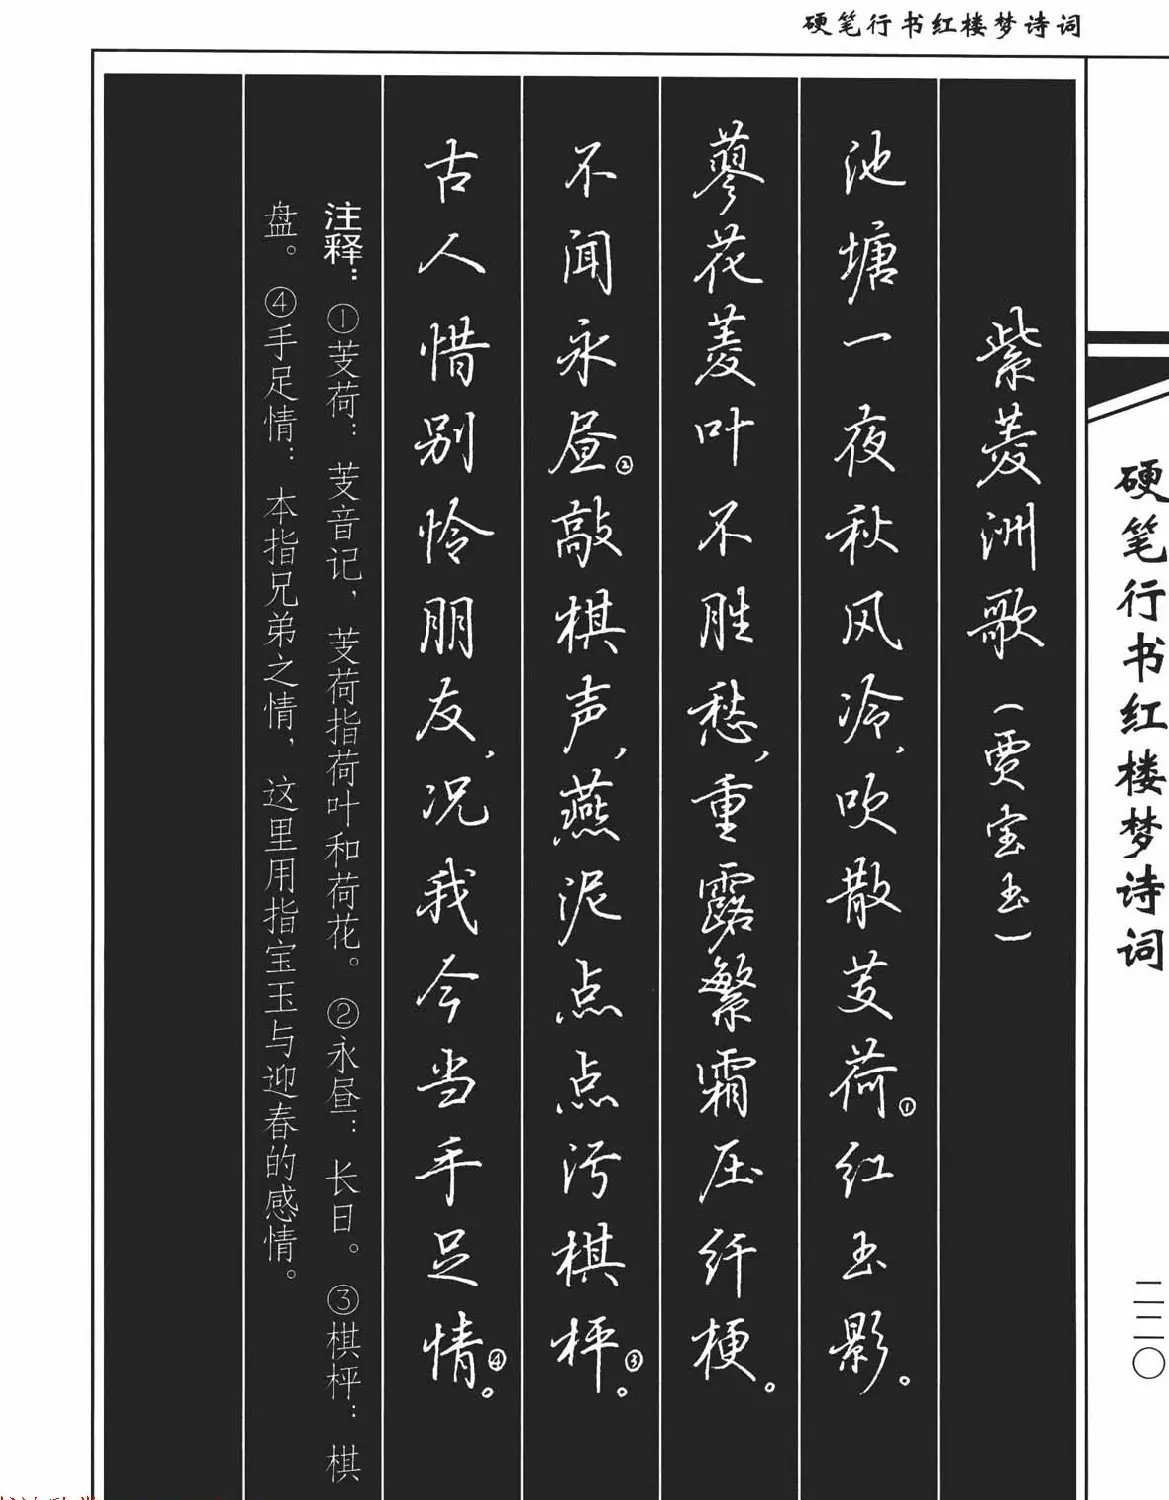 硬笔行书红楼梦诗词
硬笔行书红楼梦诗词
二二〇
紫菱洲歌（贾宝玉）
池塘一夜秋风冷，吹散芰荷①红玉影。
蓼花菱叶不胜愁，重露繁霜压纤梗。
不闻永昼②敲棋声，燕泥点点污棋枰③。
古人惜别怜朋友，况我今当手足情④。
注释：①芰荷：芰音记，芰荷指荷叶和荷花。②永昼：长日。③棋枰：棋
盘。④手足情：本指兄弟之情，这里用指宝玉与迎春的感情。